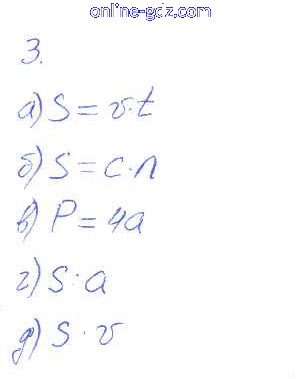 online-gdz.com
3.
а) S = v·t
б) S = c·n
в) P = 4a
г) S:a
д) S · v